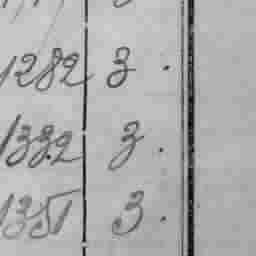 1282 3.
1332 3.
1351 3.